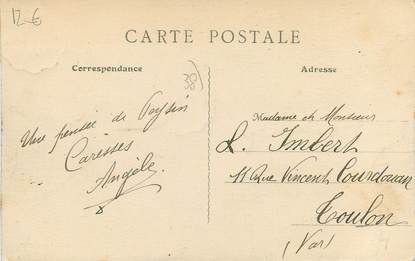 12 €
CARTE POSTALE
Correspondance
Adresse
38
Une pensée de Voysin
Caresses
Angèle
Madame & Monsieur
L. Imbert
11 Rue Vincent Courdouan
Toulon
(Var)